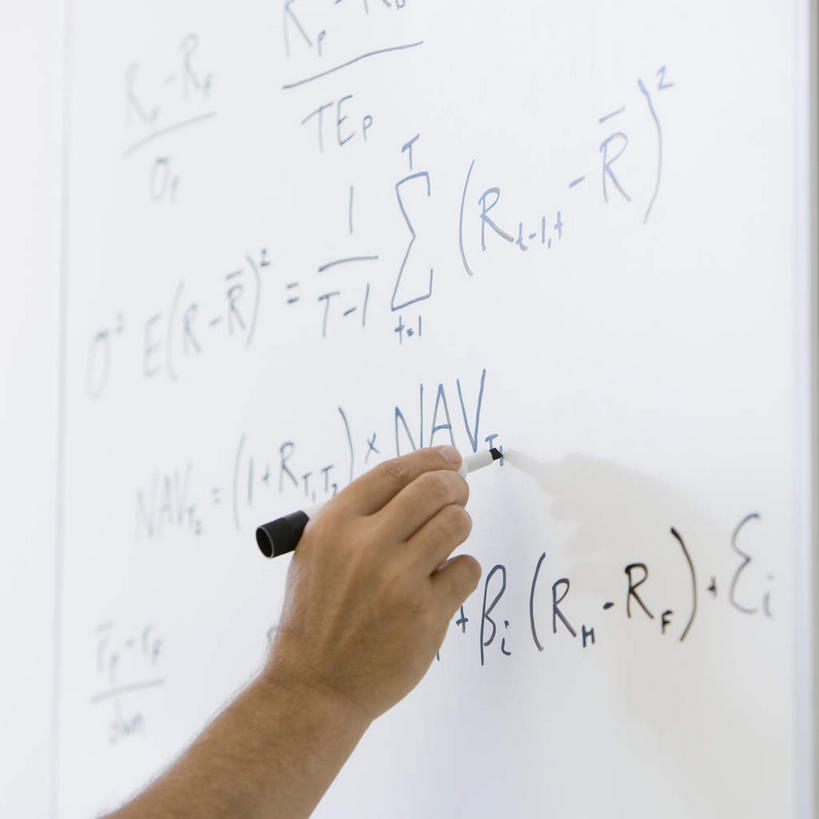 R_P - R_F / σ_P
R_P - R_B / TE_P
σ² E(R - R̄)² = 1/(T-1) Σ_{t=1}^{T} (R_{t-1,t} - R̄)²
NAV_{T₂} = (1 + R_{T₁,T₂}) × NAV_{T₁}
+ β_i (R_M - R_F) + ε_i
r̄_P - r_F